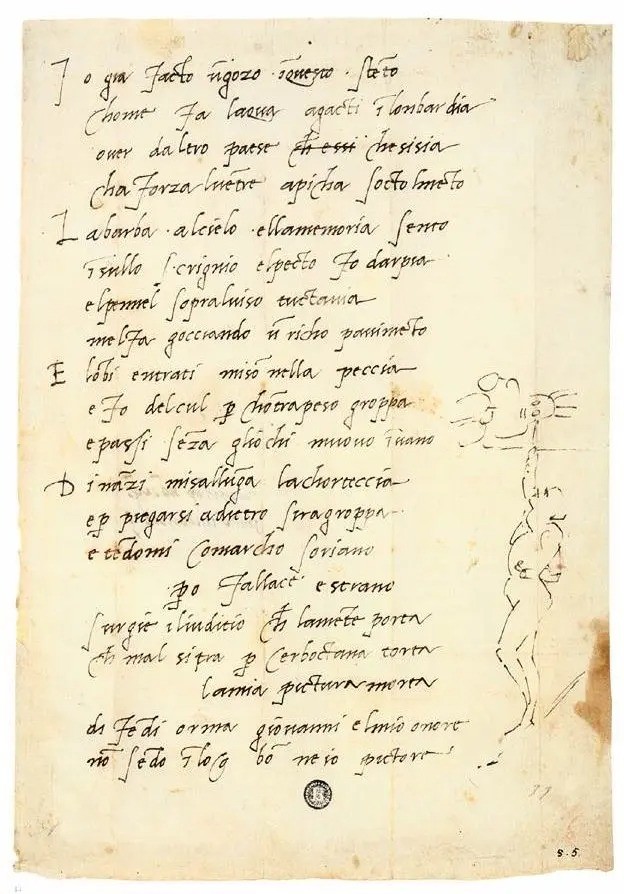 I o gia facto ūgozo īquesto steto
chome fa laqua agacti īlonbardia
over daltro paese ch essi chesisia
cha forza lvētre apicha socto lmēto
L abarba alcielo ellamemoria sento
īsullo scrignio elpecto fo darpia
elpennel sopraluiso tuctavia
melfa gocciando ū richo pavimēto
E lōbi entrati misō nella peccia
e fo delcul p chōtrapeso groppa
epassi sēza gliochi muovo īvano
D ināzi misallūga lachorteccia
ep piegarsi adietro siragroppa
e tēdomi comarcho soriano
po fallace e strano
surgie iliuditio ch lamēte porta
ch mal sitra p cerboctana torta
lamia pictura morta
difēdi orma giovanni elmio onore
nō sēdo īlog bō ne io pictore
s. 5.